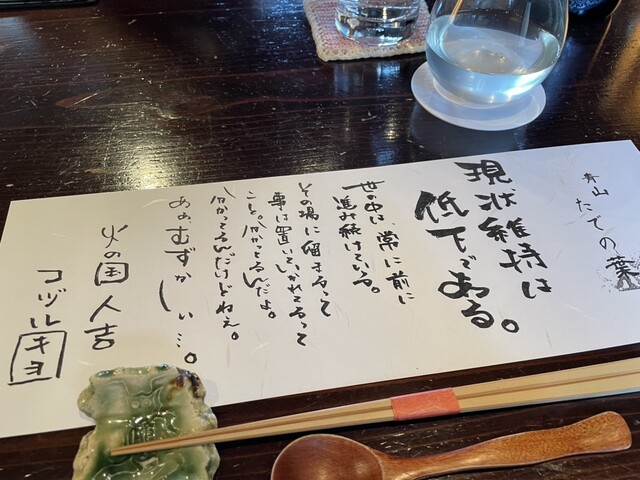 青山 たでの葉
現状維持は
低下である。
世の中は、常に前に
進み続けている。
その場に留まるって
事は置いていかれてるって
こと。分かってるんだよ。
分かってるんだけどねぇ。
あぁ、むずかしい…。
火の国 人吉
コヅル キヨ